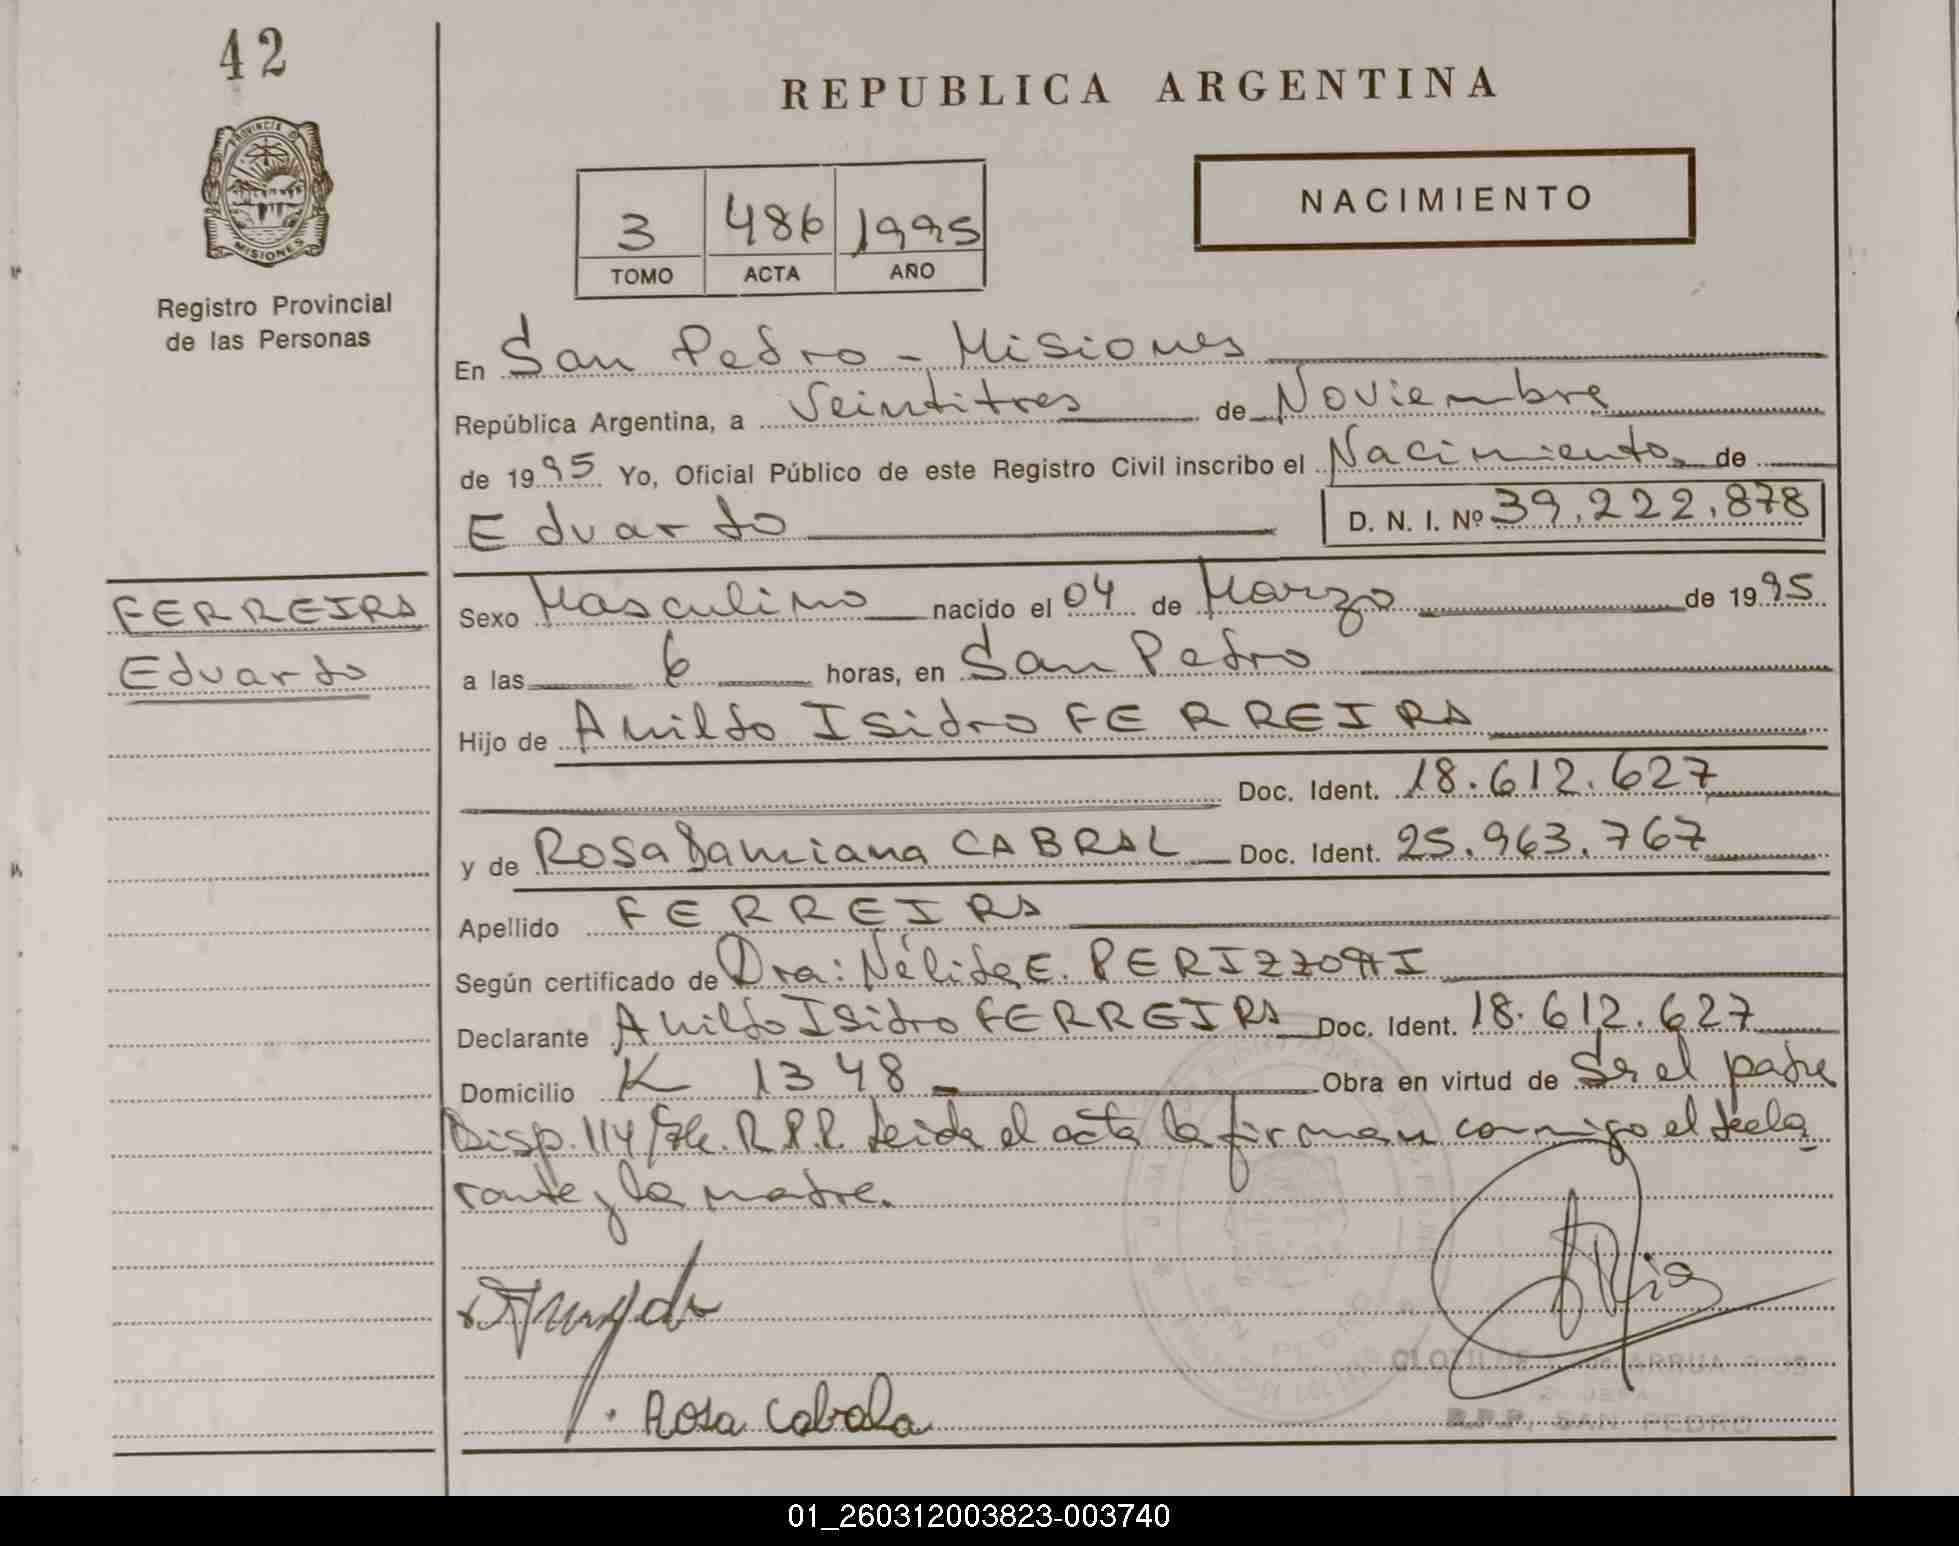 42
REPUBLICA ARGENTINA
PROVINCIA D
MISIONES
Registro Provincial
de las Personas
3 486 1995
TOMO ACTA AÑO
NACIMIENTO
En San Pedro - Misiones
República Argentina, a Veintitres de Noviembre
de 1995 Yo, Oficial Público de este Registro Civil inscribo el Nacimiento de
Eduardo D. N. I. Nº 39.222.878
FERREIRA
Eduardo
Sexo Masculino nacido el 04 de Marzo de 1995
a las 6 horas, en San Pedro
Hijo de Anildo Isidro FERREIRA
Doc. Ident. 18.612.627
y de Rosa Damiana CABRAL Doc. Ident. 25.963.767
Apellido FERREIRA
Según certificado de Dra: Nélida E.
Declarante Anildo Isidro FERREIRA Doc. Ident. 18.612.627
Domicilio K 1348 Obra en virtud de Ser el padre
Disp. 114/ R.P.P. Leida el acta la firman conmigo el decla
rante y la madre.
Rosa Cabrala
ARRUA
R.P.P. SAN PEDRO
01_260312003823-003740